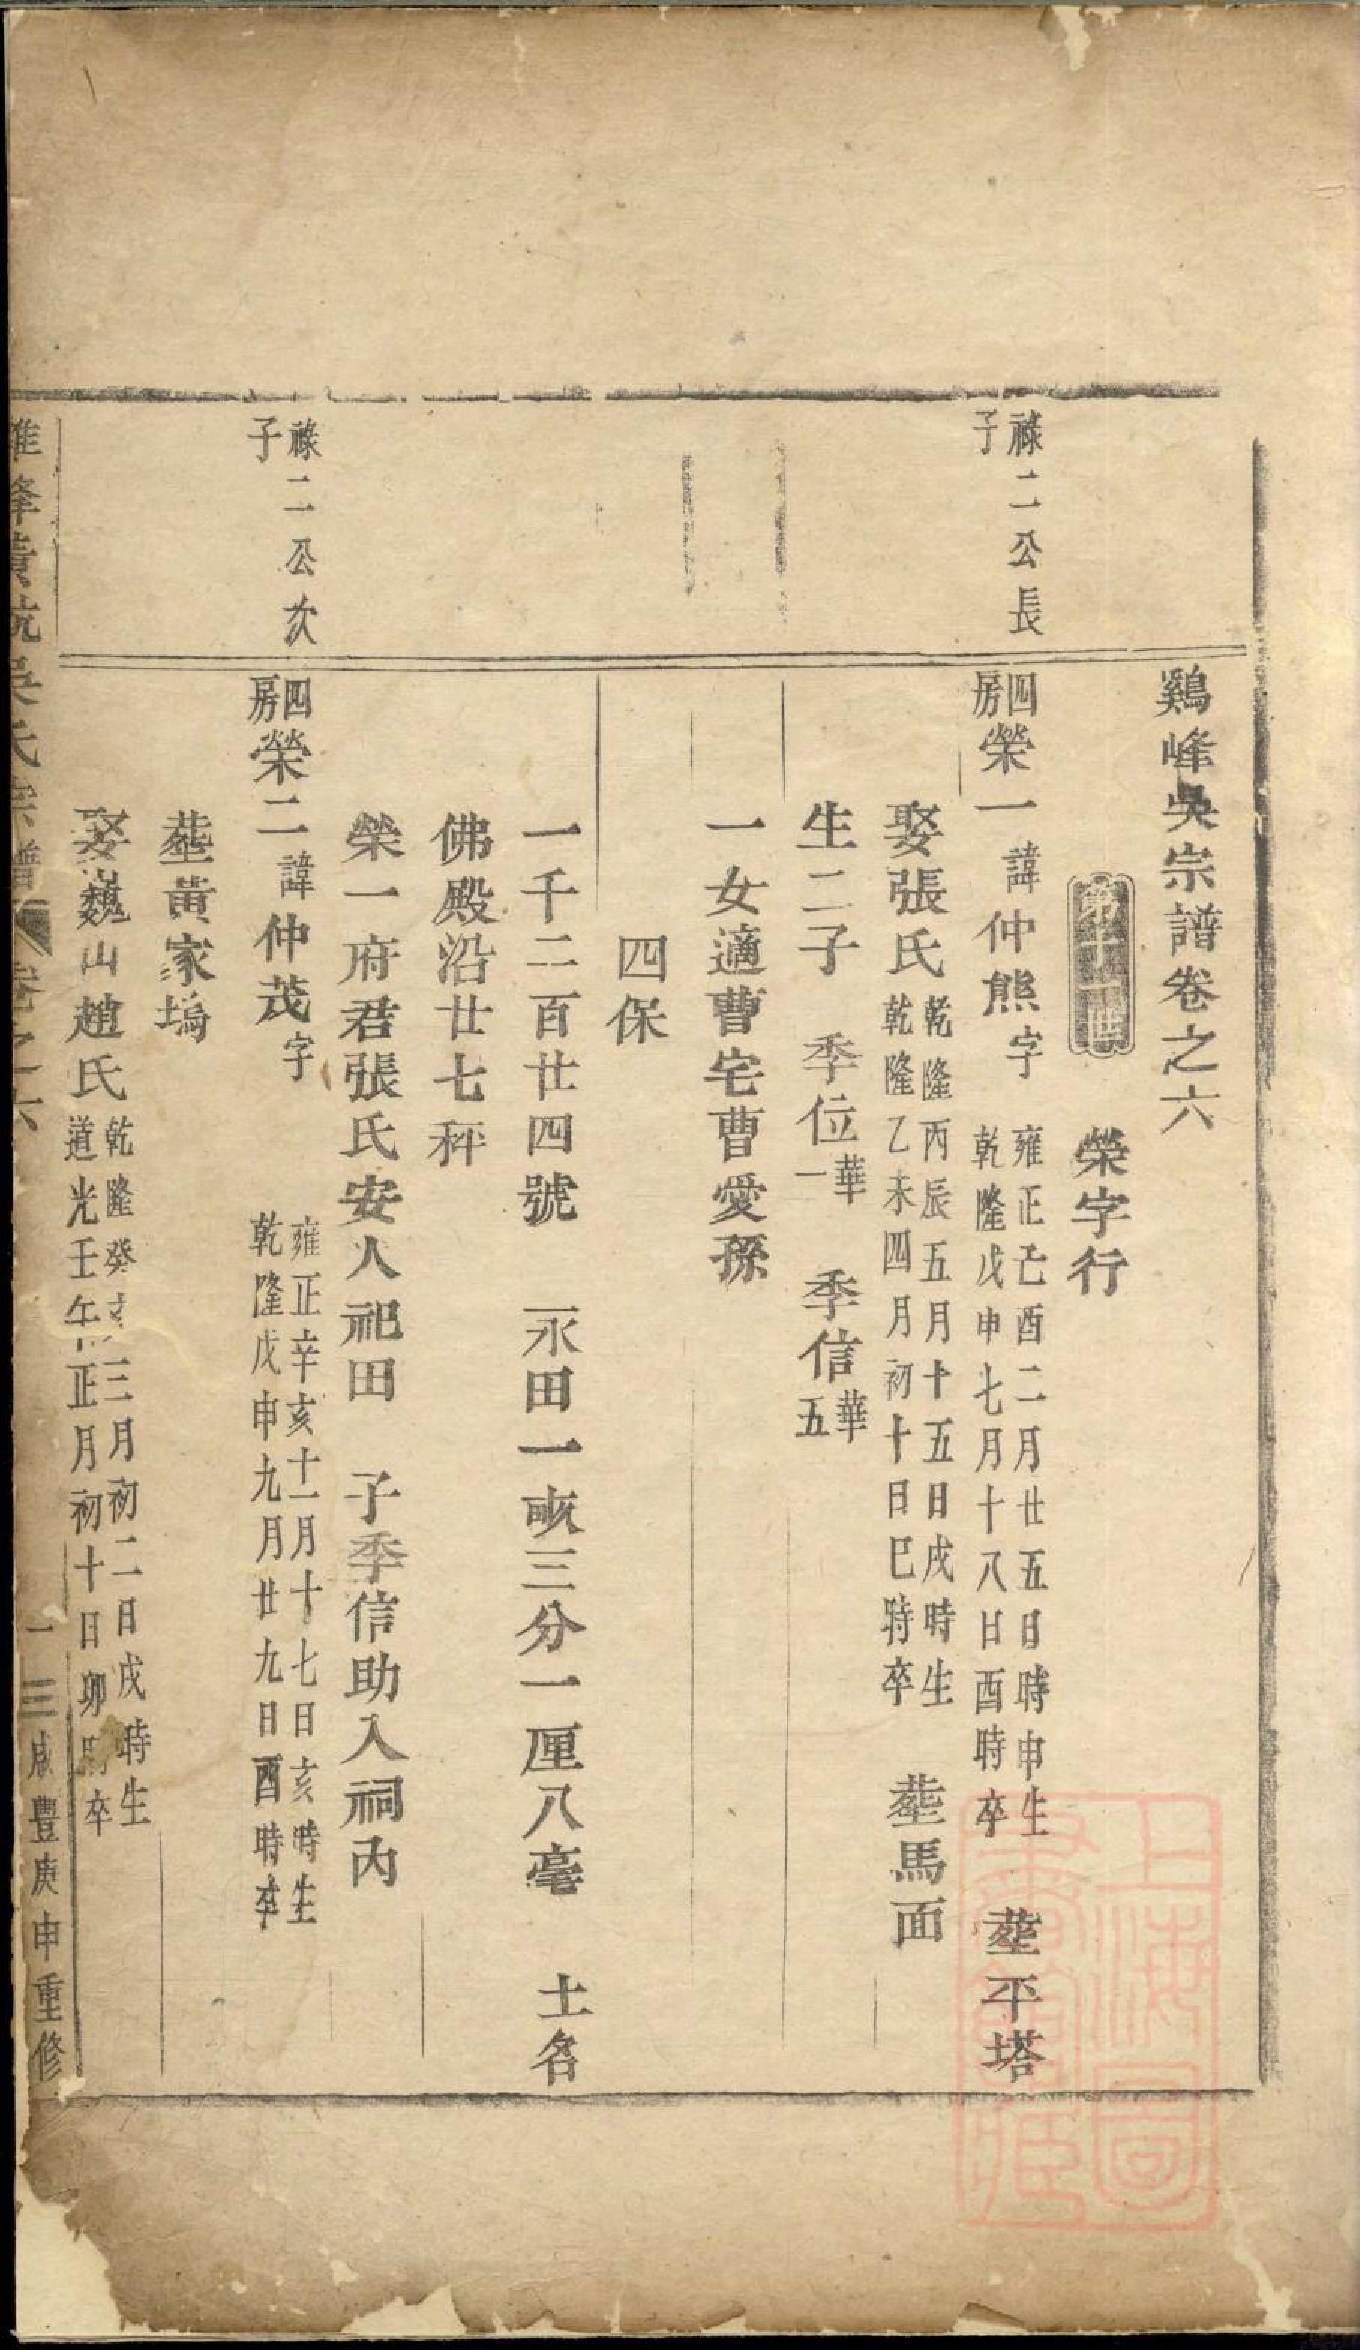 鷄峰吳宗譜卷之六
第十一世　榮字行
祿二公長子
四房榮一諱仲熊字　雍正己酉二月廿五日時申生　乾隆戊申七月十八日酉時卒　塟平塔
娶張氏　乾隆丙辰五月十五日戌時生　乾隆乙未四月初十日巳時卒　塟馬面
生二子　季位華一　季信華五
一女適曹宅曹愛孫
四保
一千二百廿四號　一永田一畝三分一厘八毫　土名
佛殿沿廿七秤
榮一府君張氏安人祀田　子季信助入祠內
祿二公次子
四房榮二諱仲茂字　雍正辛亥十一月十七日亥時生　乾隆戊申九月廿九日酉時卒
塟黃家塢
娶巍山趙氏　乾隆癸亥三月初二日戌時生　道光壬午正月初十日卯時卒
峰黃杭吳氏宗譜　卷之六　一　三　咸豐庚申重修
上海圖書館藏